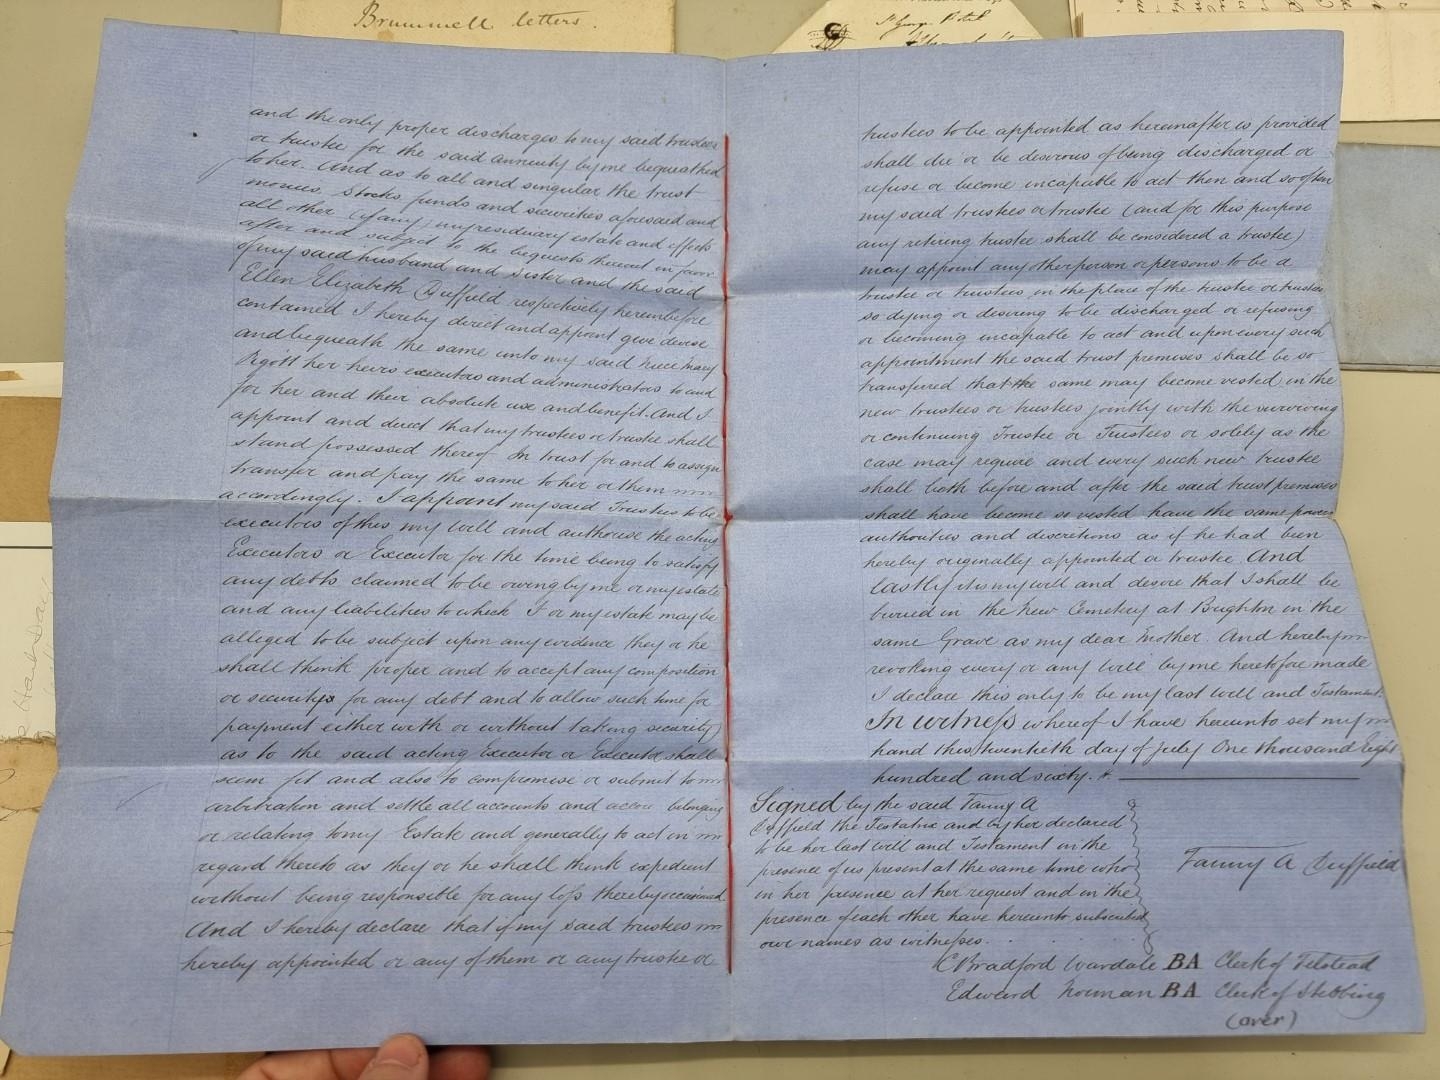 Brummell letters.
St George
and the only proper discharges to my said trustees
or trustee for the said annuity by me bequeathed
to her. And as to all and singular the trust
monies, stocks, funds and securities aforesaid and
all other (if any) my residuary estate and effects
after and subject to the bequests thereout in favor
of my said husband and sister and the said
Ellen Elizabeth Duffield respectively hereinbefore
contained I hereby direct and appoint give devise
and bequeath the same unto my said niece Mary
Pigott her heirs executors and administrators to and
for her and their absolute use and benefit. And I
appoint and direct that my trustees or trustee shall
stand possessed thereof In trust for and to assign
transfer and pay the same to her or them
accordingly. I appoint my said Trustees to be
executors of this my Will and authorise the acting
Executors or Executor for the time being to satisfy
any debts claimed to be owing by me or my estate
and any liabilities to which I or my estate may be
alleged to be subject upon any evidence they or he
shall think proper and to accept any composition
or security for any debt and to allow such time for
payment either with or without taking security)
as to the said acting Executor or Executor shall
seem fit and also to compromise or submit to
arbitration and settle all accounts and belonging
or relating to my Estate and generally to act in
regard thereto as they or he shall think expedient
without being responsible for any loss thereby occasioned.
And I hereby declare that if my said trustees
hereby appointed or any of them or any trustee or
trustees to be appointed as hereinafter is provided
shall die or be desirous of being discharged or
refuse or become incapable to act then and so often
my said trustees or trustee (and for this purpose
any retiring trustee shall be considered a trustee)
may appoint any other person or persons to be a
trustee or trustees in the place of the trustee or trustees
so dying or desiring to be discharged or refusing
or becoming incapable to act and upon every such
appointment the said trust premises shall be so
transfered that the same may become vested in the
new trustees or trustees jointly with the surviving
or continuing Trustee or Trustees or solely as the
case may require and every such new trustee
shall both before and after the said trust premises
shall have become so vested have the same powers
authorities and discretions as if he had been
hereby originally appointed a trustee. And
lastly it is my will and desire that I shall be
buried in the New Cemetery at Brighton in the
same Grave as my dear Mother. And hereby
revoking every or any Will by me heretofore made
I declare this only to be my last will and Testament.
In witness whereof I have hereunto set my
hand this twentieth day of July One thousand eight
hundred and sixty.
Signed by the said Fanny A
Duffield the Testatrix and by her declared
to be her last will and Testament in the
presence of us present at the same time who
in her presence at her request and in the
presence of each other have hereunto subscribed
our names as witnesses.
Fanny A Duffield
C Bradford Wardale BA Clerk of Felstead
Edward Norman BA Clerk of Stebbing
(over)